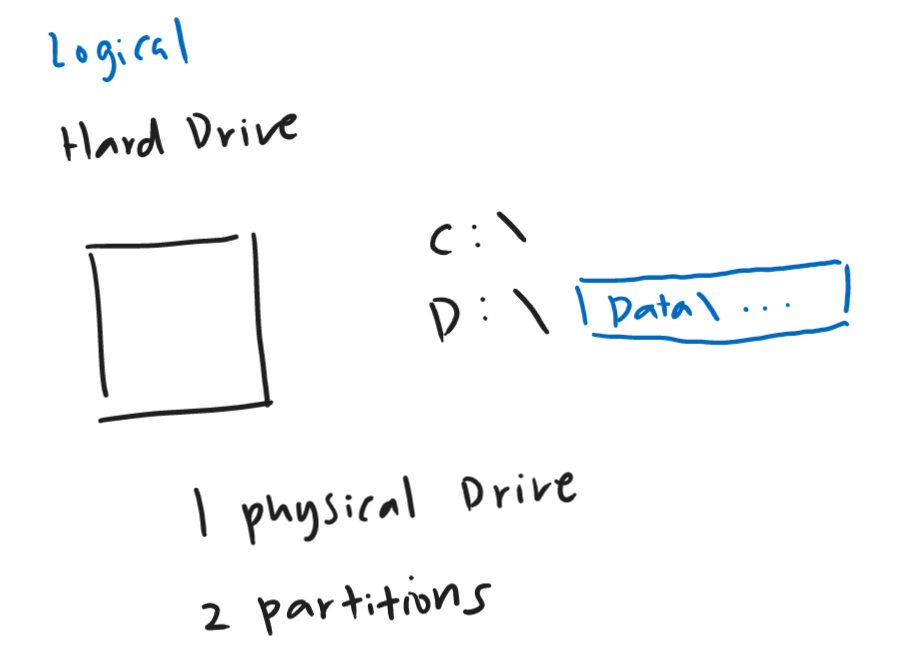 Logical
Hard Drive
C:\
D:\ Data\ ...
1 physical Drive
2 partitions